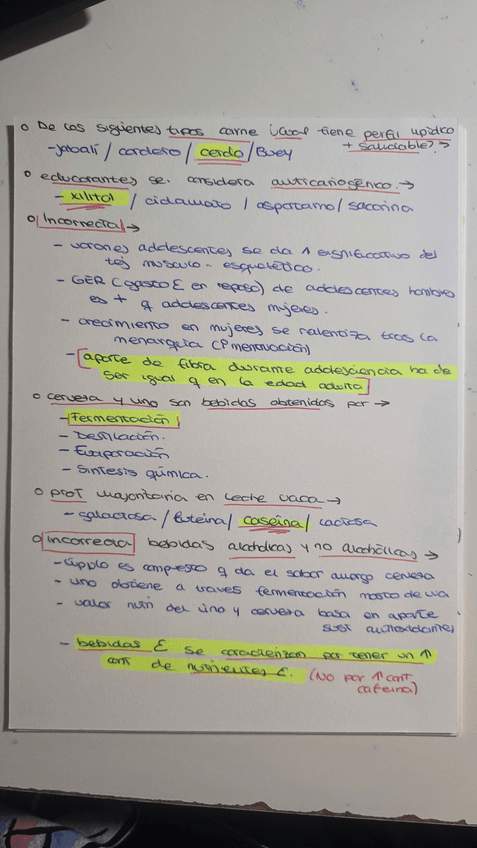 o De los siguientes tipos carne ¿cual tiene perfil lipidico
+ saludable? →
- Jabalí / cordero / cerdo / Buey
o edulcorantes se considera anticariogénico. →
- xilitol / ciclamato / aspartamo / sacarina
o Incorrecta →
- varones adolescentes se da ↑ significativo del
tej músculo - esquelético.
- GER (gasto E en reposo) de adolescentes hombres
es + q adolescentes mujeres.
- crecimiento en mujeres se ralentiza tras la
menarquia (1ª menstruación)
- aporte de fibra durante adolescencia ha de
ser igual q en la edad adulta
o cerveza y vino son bebidas obtenidas por →
- Fermentación
- Destilación.
- Evaporación
- Síntesis química.
o prot mayoritaria en leche vaca →
- galactosa / / caseína / lactosa
o Incorrecta bebidas alcohólicas y no alcohólicas →
- lúpulo es compuesto q da el sabor amargo cerveza
- vino obtiene a través fermentación mosto de uva
- valor nutri del vino y cerveza basa en aporte
sust antioxidantes
- bebidas E se caracterizan por tener un ↑
cont de nutrientes E. (No por ↑ cont
cafeína)